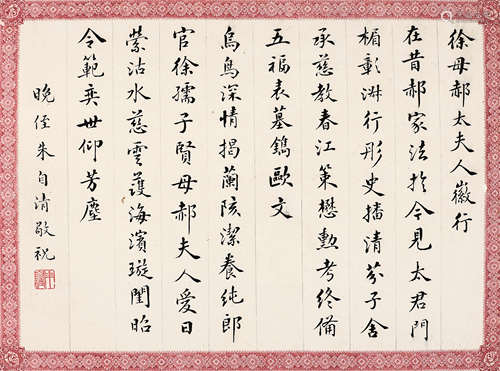 徐母郝太夫人徽行
在昔郝家法於今見太君門
楣彰淑行彤史播清芬子舍
承慈教春江策懋勳考終備
五福表墓鐫歐文
烏鳥深情揭蘭陔潔養純郎
官徐孺子賢母郝夫人愛日
縈沾水慈雲護海濱璇閨昭
令範奕世仰芳塵
晚侄朱自清敬祝